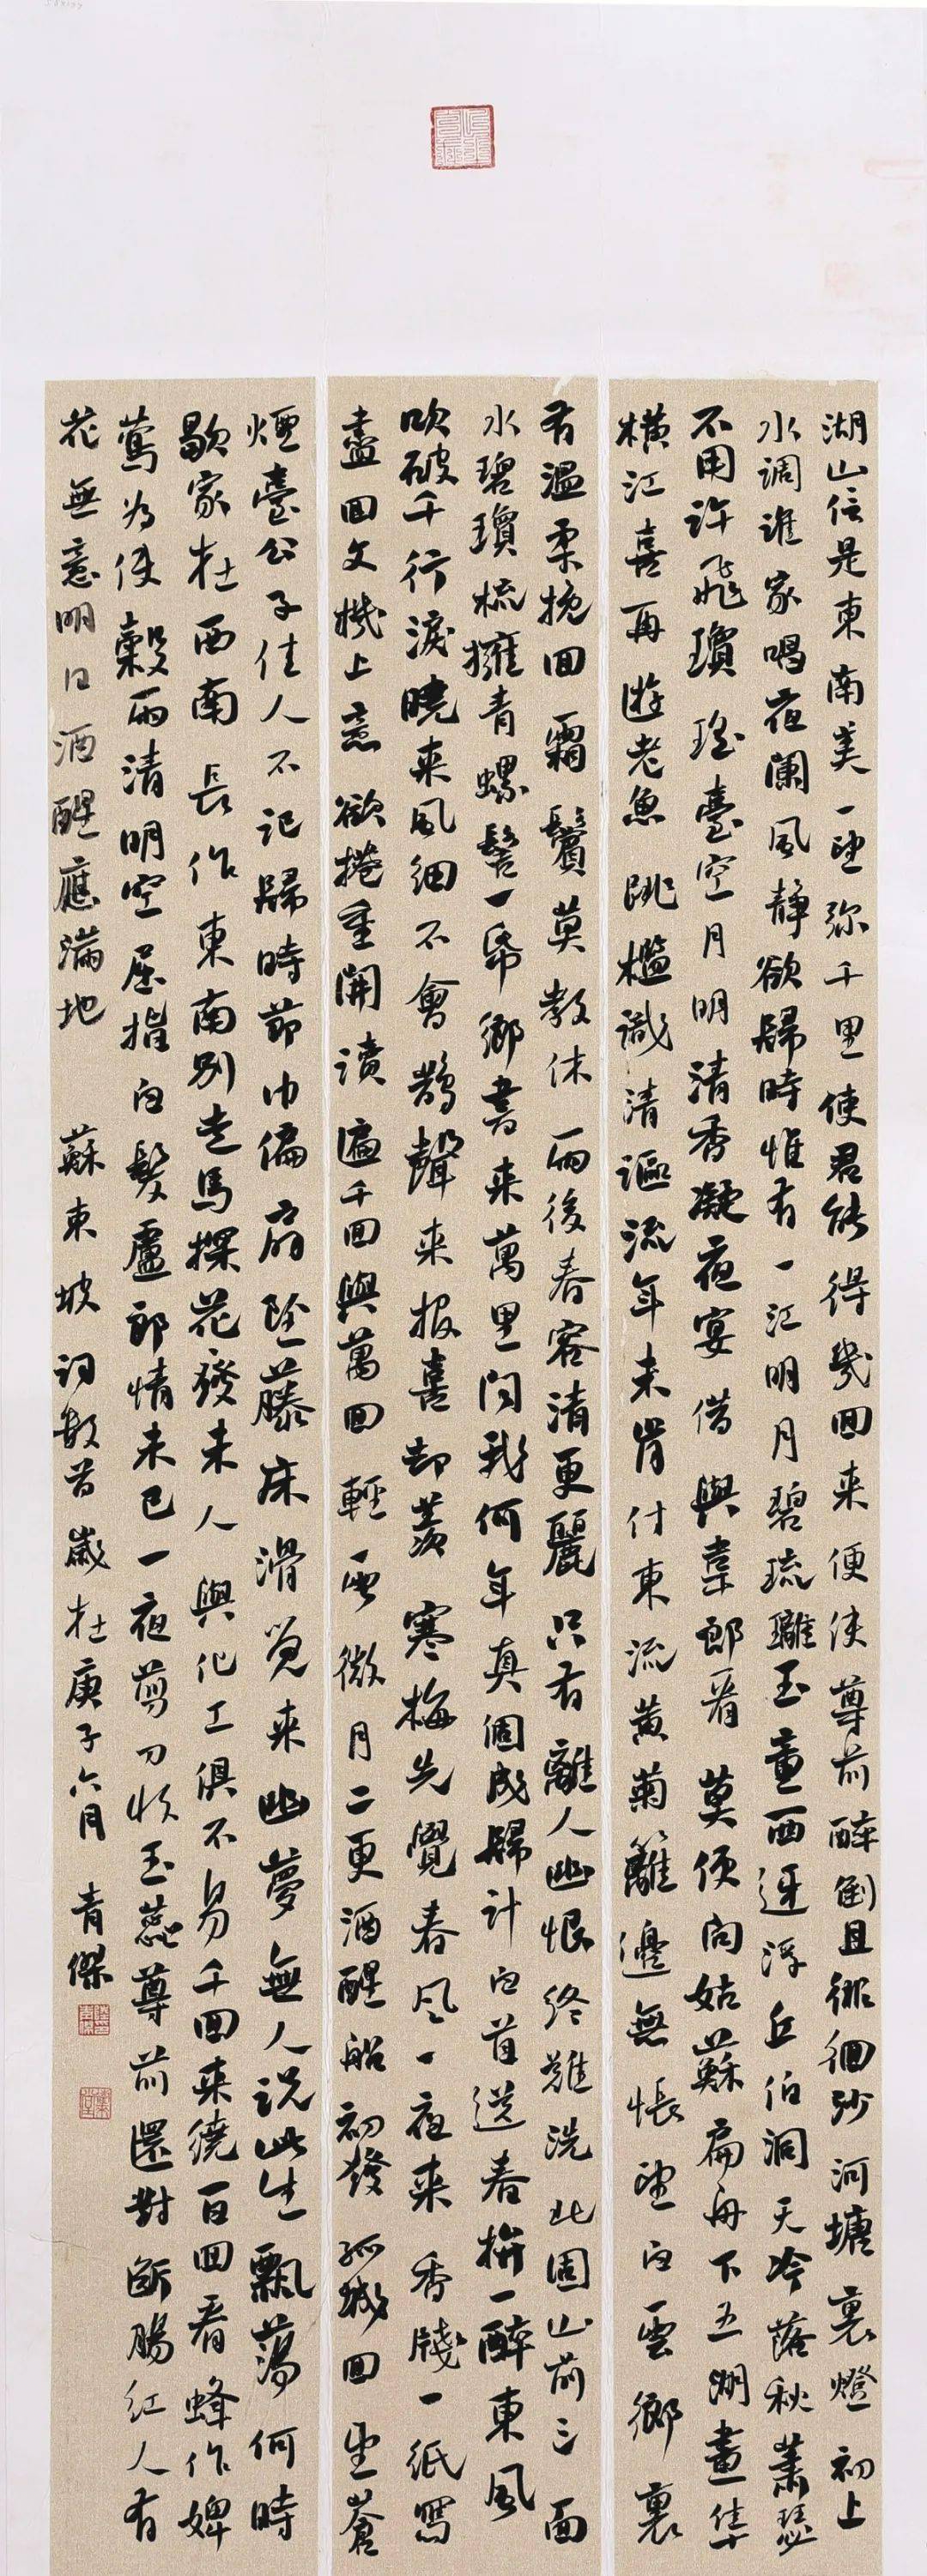 湖山信是東南美一望弥千里使君能得幾回来便使尊前醉倒且徘徊沙河塘裏燈初上
水調誰家唱夜闌風静欲歸時惟有一江明月碧琉璃玉童西迓浮丘伯洞天冷落秋蕭瑟
不用許飛瓊瑤臺空月明清香凝夜宴借與韋郎看莫便向姑蘇扁舟下五湖畫隼
横江喜再遊老魚跳檻識清謳流年未肯付東流黄菊籬邊無悵望白雲鄉裏
有温柔挽回霜鬢莫教休雨後春容清更麗只有離人幽恨終難洗北固山前三面
水碧瓊梳擁青螺髻一帋鄉書来萬里问我何年真個成歸計白首送春拚一醉東風
吹破千行淚曉来風細不會鵲聲来报喜却羡寒梅先覺春风一夜来香牋一纸寫
盡回文機上意欲捲重開讀遍千回與萬回輕雲微月二更酒醒船初發孤城回望蒼
煙臺公子佳人不记歸時節巾偏扇墜藤床滑覚来幽夢無人说此生飄蕩何時
歇家在西南長作東南别走馬探花發未人與化工俱不易千回来繞百回看蜂作婢
鶯为使穀雨清明空屈指白髮盧郎情未已一夜剪刀收玉蕊尊前還對斷腸红人有
花無意明日酒醒應满地 蘇東坡词数首歲在庚子六月 青傑